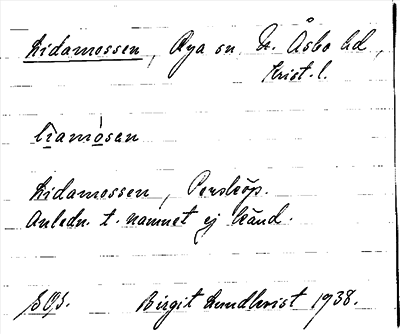 Lidamossen, Rya sn. N. Åsbo hd,
Krist. l.
liamósen
Lidamossen, Perstorp.
Anledn. t. namnet ej känd.
Birgit Lundkvist 1938.